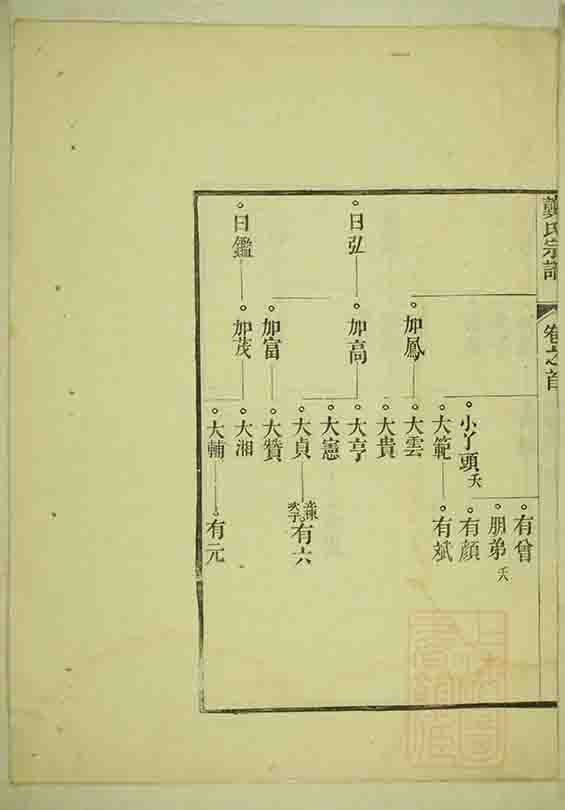 龔氏宗譜
卷之首
有曾
朋弟夭
有顏
有斌
小丫頭夭
大範
大雲
大貴
大亨
大憲
大貞
有六
大贊
大湘
大輔
有元
加鳳
加高
加富
加茂
日弘
日鑑